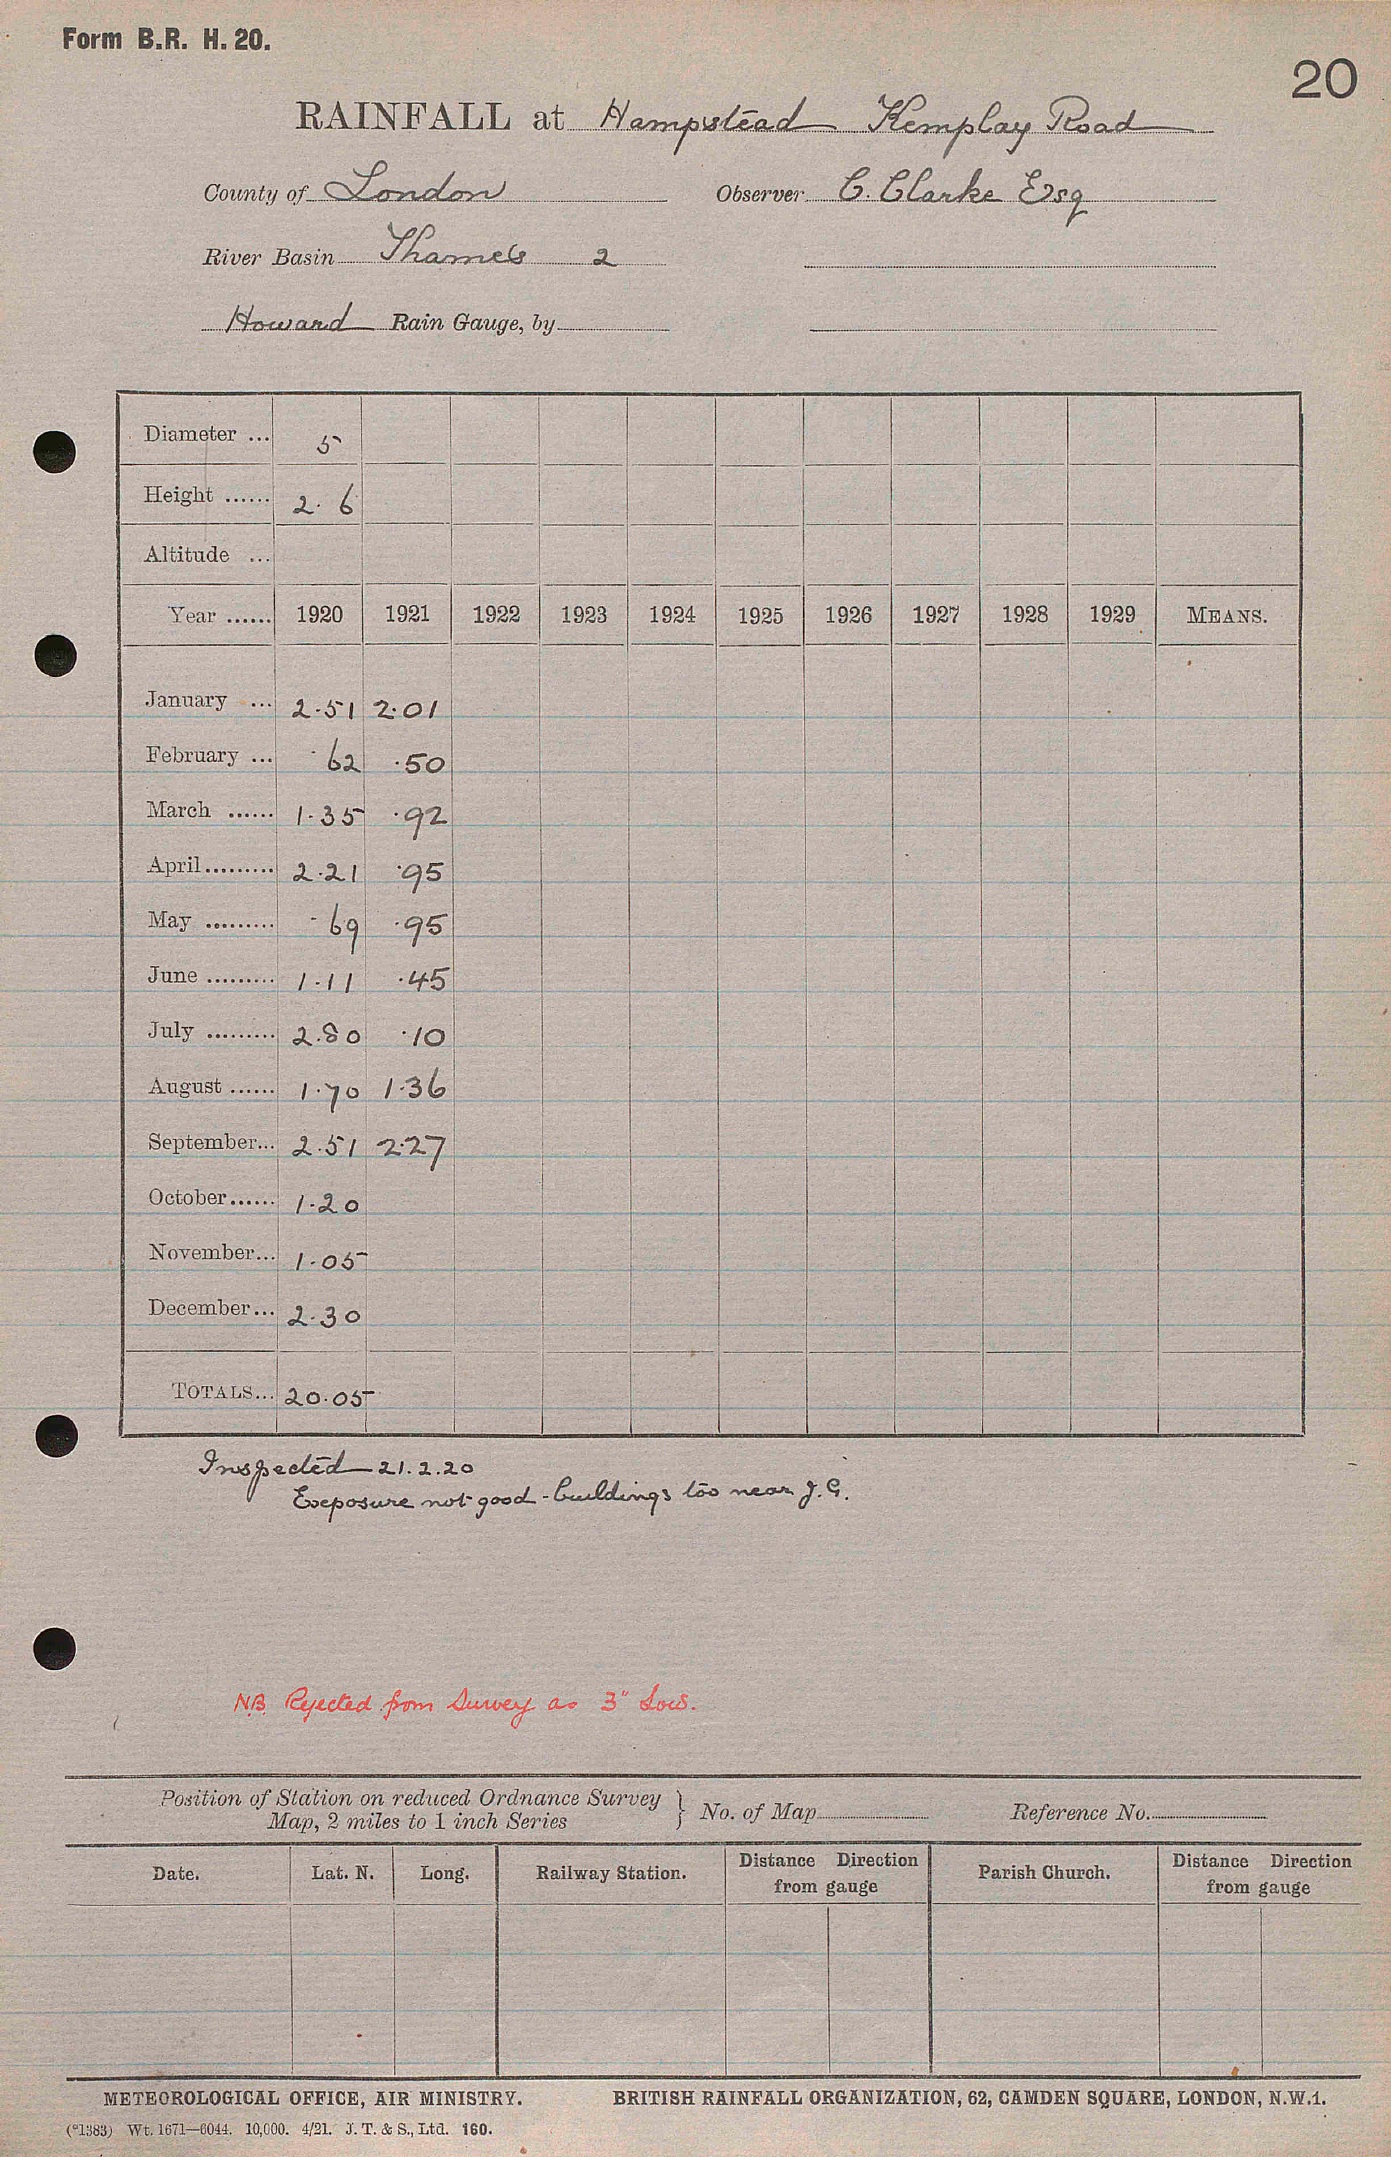 Form B.R. H. 20.
20
RAINFALL at Hampstead Kemplay Road
County of London Observer C. Clarke Esq
River Basin Thames 2
Howard Rain Gauge, by
Diameter ... 5
Height ...... 2. 6
Altitude ...
Year ...... 1920 1921 1922 1923 1924 1925 1926 1927 1928 1929 MEANS.
January ... 2.51 2.01
February ... .62 .50
March ...... 1.35 .92
April ......... 2.21 .95
May ......... .69 .95
June ......... 1.11 .45
July ......... 2.80 .10
August ...... 1.70 1.36
September... 2.51 2.27
October...... 1.20
November... 1.05
December... 2.30
TOTALS... 20.05
Inspected 21.2.20
Exposure not good - buildings too near J.G.
N.B. Rejected from Survey as 3" Low.
Position of Station on reduced Ordnance Survey
Map, 2 miles to 1 inch Series } No. of Map Reference No.
Date. Lat. N. Long. Railway Station. Distance Direction from gauge Parish Church. Distance Direction from gauge
METEOROLOGICAL OFFICE, AIR MINISTRY. BRITISH RAINFALL ORGANIZATION, 62, CAMDEN SQUARE, LONDON, N.W.1.
(*1383) Wt. 1671—6044. 10,000. 4/21. J. T. & S., Ltd. 160.